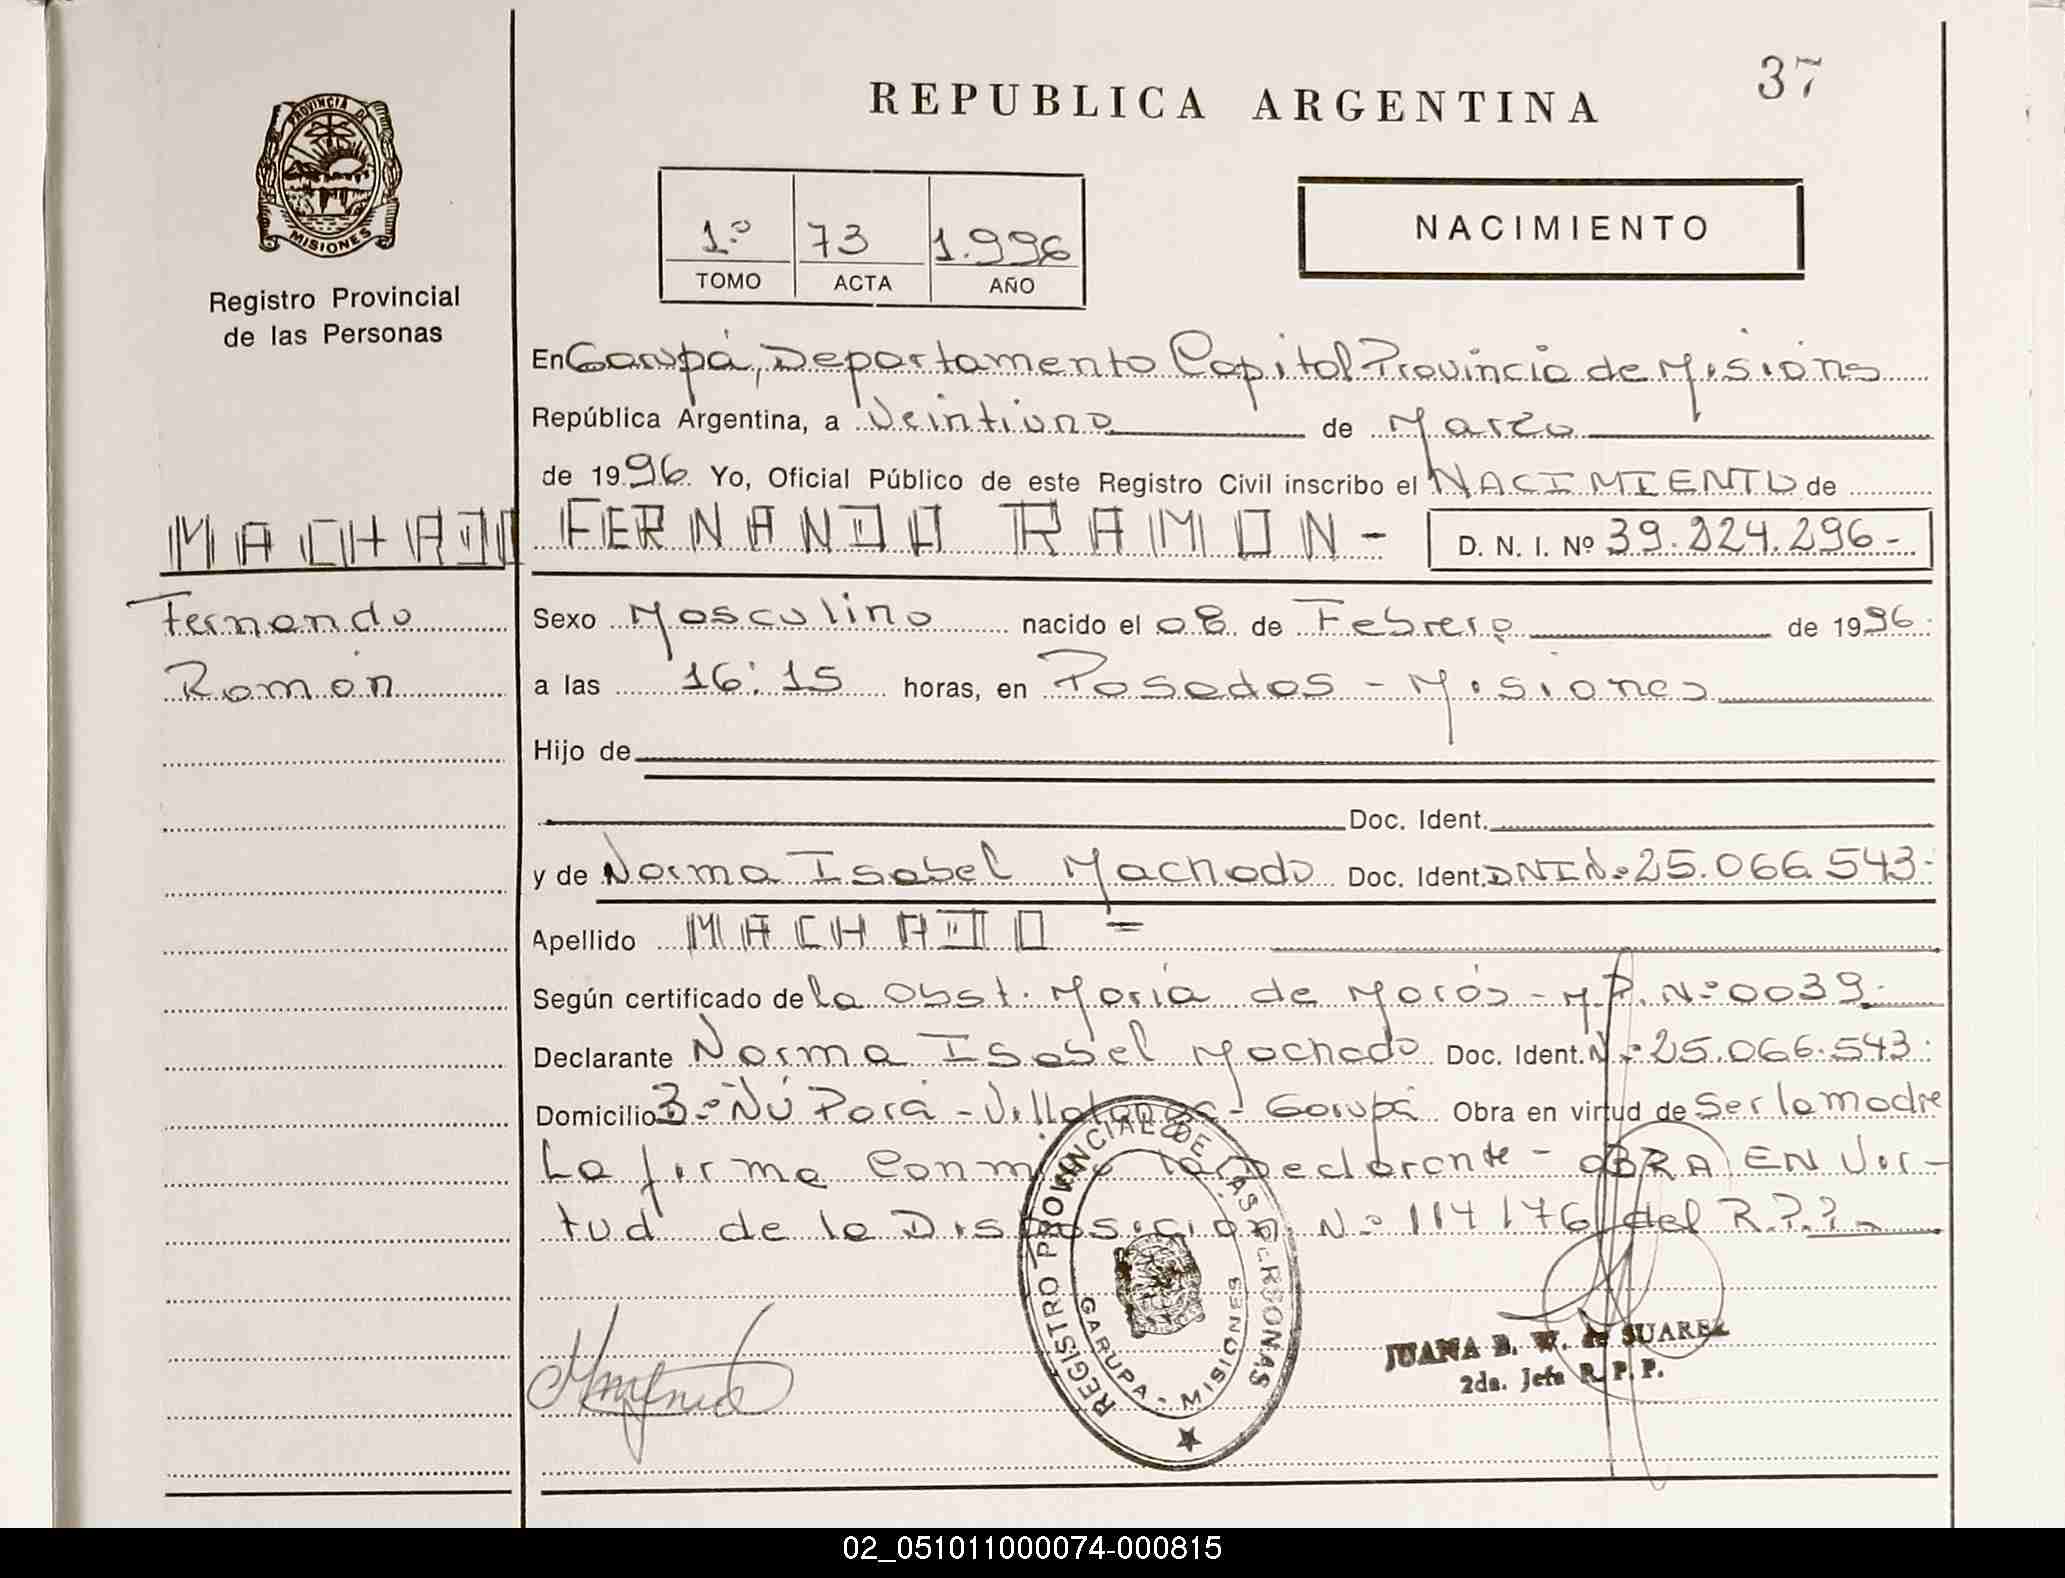 37
REPUBLICA ARGENTINA
PROVINCIA DE
MISIONES
Registro Provincial
de las Personas
1.º 73 1.996
TOMO ACTA AÑO
NACIMIENTO
En Garupá, Departamento Capital Provincia de Misions
República Argentina, a Veintiuno de Marzo
de 1996 Yo, Oficial Público de este Registro Civil inscribo el NACIMIENTO de
MACHADO FERNANDO RAMON - D. N. I. Nº 39.224.296-
Fernando
Ramón
Sexo Masculino nacido el 08 de Febrero de 1996
a las 16:15 horas, en Posadas - Misiones
Hijo de
Doc. Ident.
y de Norma Isabel Machado Doc. Ident. DNI Nº 25.066.543-
Apellido MACHADO =
Según certificado de la Obst. María de Morós - M.P. Nº 0039.
Declarante Norma Isabel Machado Doc. Ident. Nº 25.066.543.
Domicilio Bº Ñú Porá - Villalonga - Garupá Obra en virtud de Ser la madre
La firma Conmigo la Declarante - OBRA EN Vir-
tud de la Disposición Nº 114176 del R.P.P.-
REGISTRO PROVINCIAL DE LAS PERSONAS
GARUPA - MISIONES
JUANA B. W. de SUAREZ
2da. Jefa R. P. P.
02_051011000074-000815